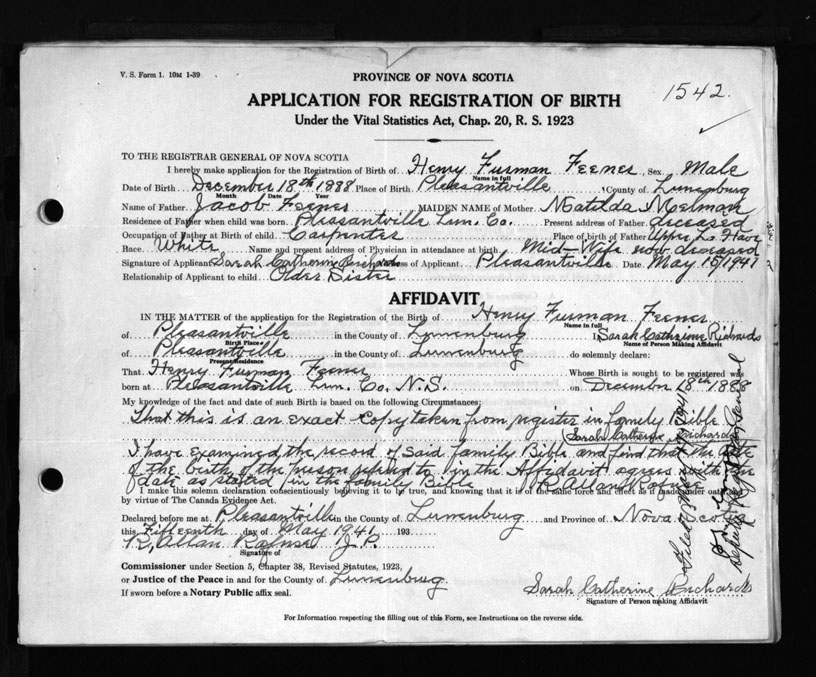 V. S. Form 1. 10M 1-39
PROVINCE OF NOVA SCOTIA
1542.
APPLICATION FOR REGISTRATION OF BIRTH
Under the Vital Statistics Act, Chap. 20, R. S. 1923
TO THE REGISTRAR GENERAL OF NOVA SCOTIA
I hereby make application for the Registration of Birth of Henry Furman Feener Sex Male
Name in full
Date of Birth December 18th 1888 Place of Birth Pleasantville County of Lunenburg
Month Date Year
Name of Father Jacob Feener MAIDEN NAME of Mother Matilda Melman
Residence of Father when child was born Pleasantville Lun. Co. Present address of Father deceased
Occupation of Father at Birth of child Carpenter Place of birth of Father Upper La Have
Race White Name and present address of Physician in attendance at birth Mid-Wife now deceased
Signature of Applicant Sarah Catherine Richards Address of Applicant Pleasantville Date May 15/1941
Relationship of Applicant to child Older Sister
AFFIDAVIT
IN THE MATTER of the application for the Registration of the Birth of Henry Furman Feener
Name in full
of Pleasantville in the County of Lunenburg I, Sarah Catherine Richards
Birth Place Name of Person making Affidavit
of Pleasantville in the County of Lunenburg do solemnly declare:
Present Residence
That Henry Furman Feener Whose Birth is sought to be registered was
born at Pleasantville Lun. Co. N.S. on December 18th 1888
My knowledge of the fact and date of such Birth is based on the following Circumstances:
That this is an exact copy taken from register in family Bible
Sarah Catherine Richards
I have examined the record of said family Bible and find that the date
of the birth of the person referred to in the Affidavit agrees with the
date as stated in the family Bible R. Allan
I make this solemn declaration conscientiously believing it to be true, and knowing that it is of the same force and effect as if made under oath and
by virtue of The Canada Evidence Act.
Declared before me at Pleasantville in the County of Lunenburg and Province of Nova Scotia
this Fifteenth day of May 1941 193
R. Allan J.P.
Signature of
Commissioner under Section 5, Chapter 38, Revised Statutes, 1923,
or Justice of the Peace in and for the County of Lunenburg.
If sworn before a Notary Public affix seal.
Sarah Catherine Richards
Signature of Person making Affidavit
For Information respecting the filling out of this Form, see Instructions on the reverse side.
Filed 1941
Deputy Registrar General